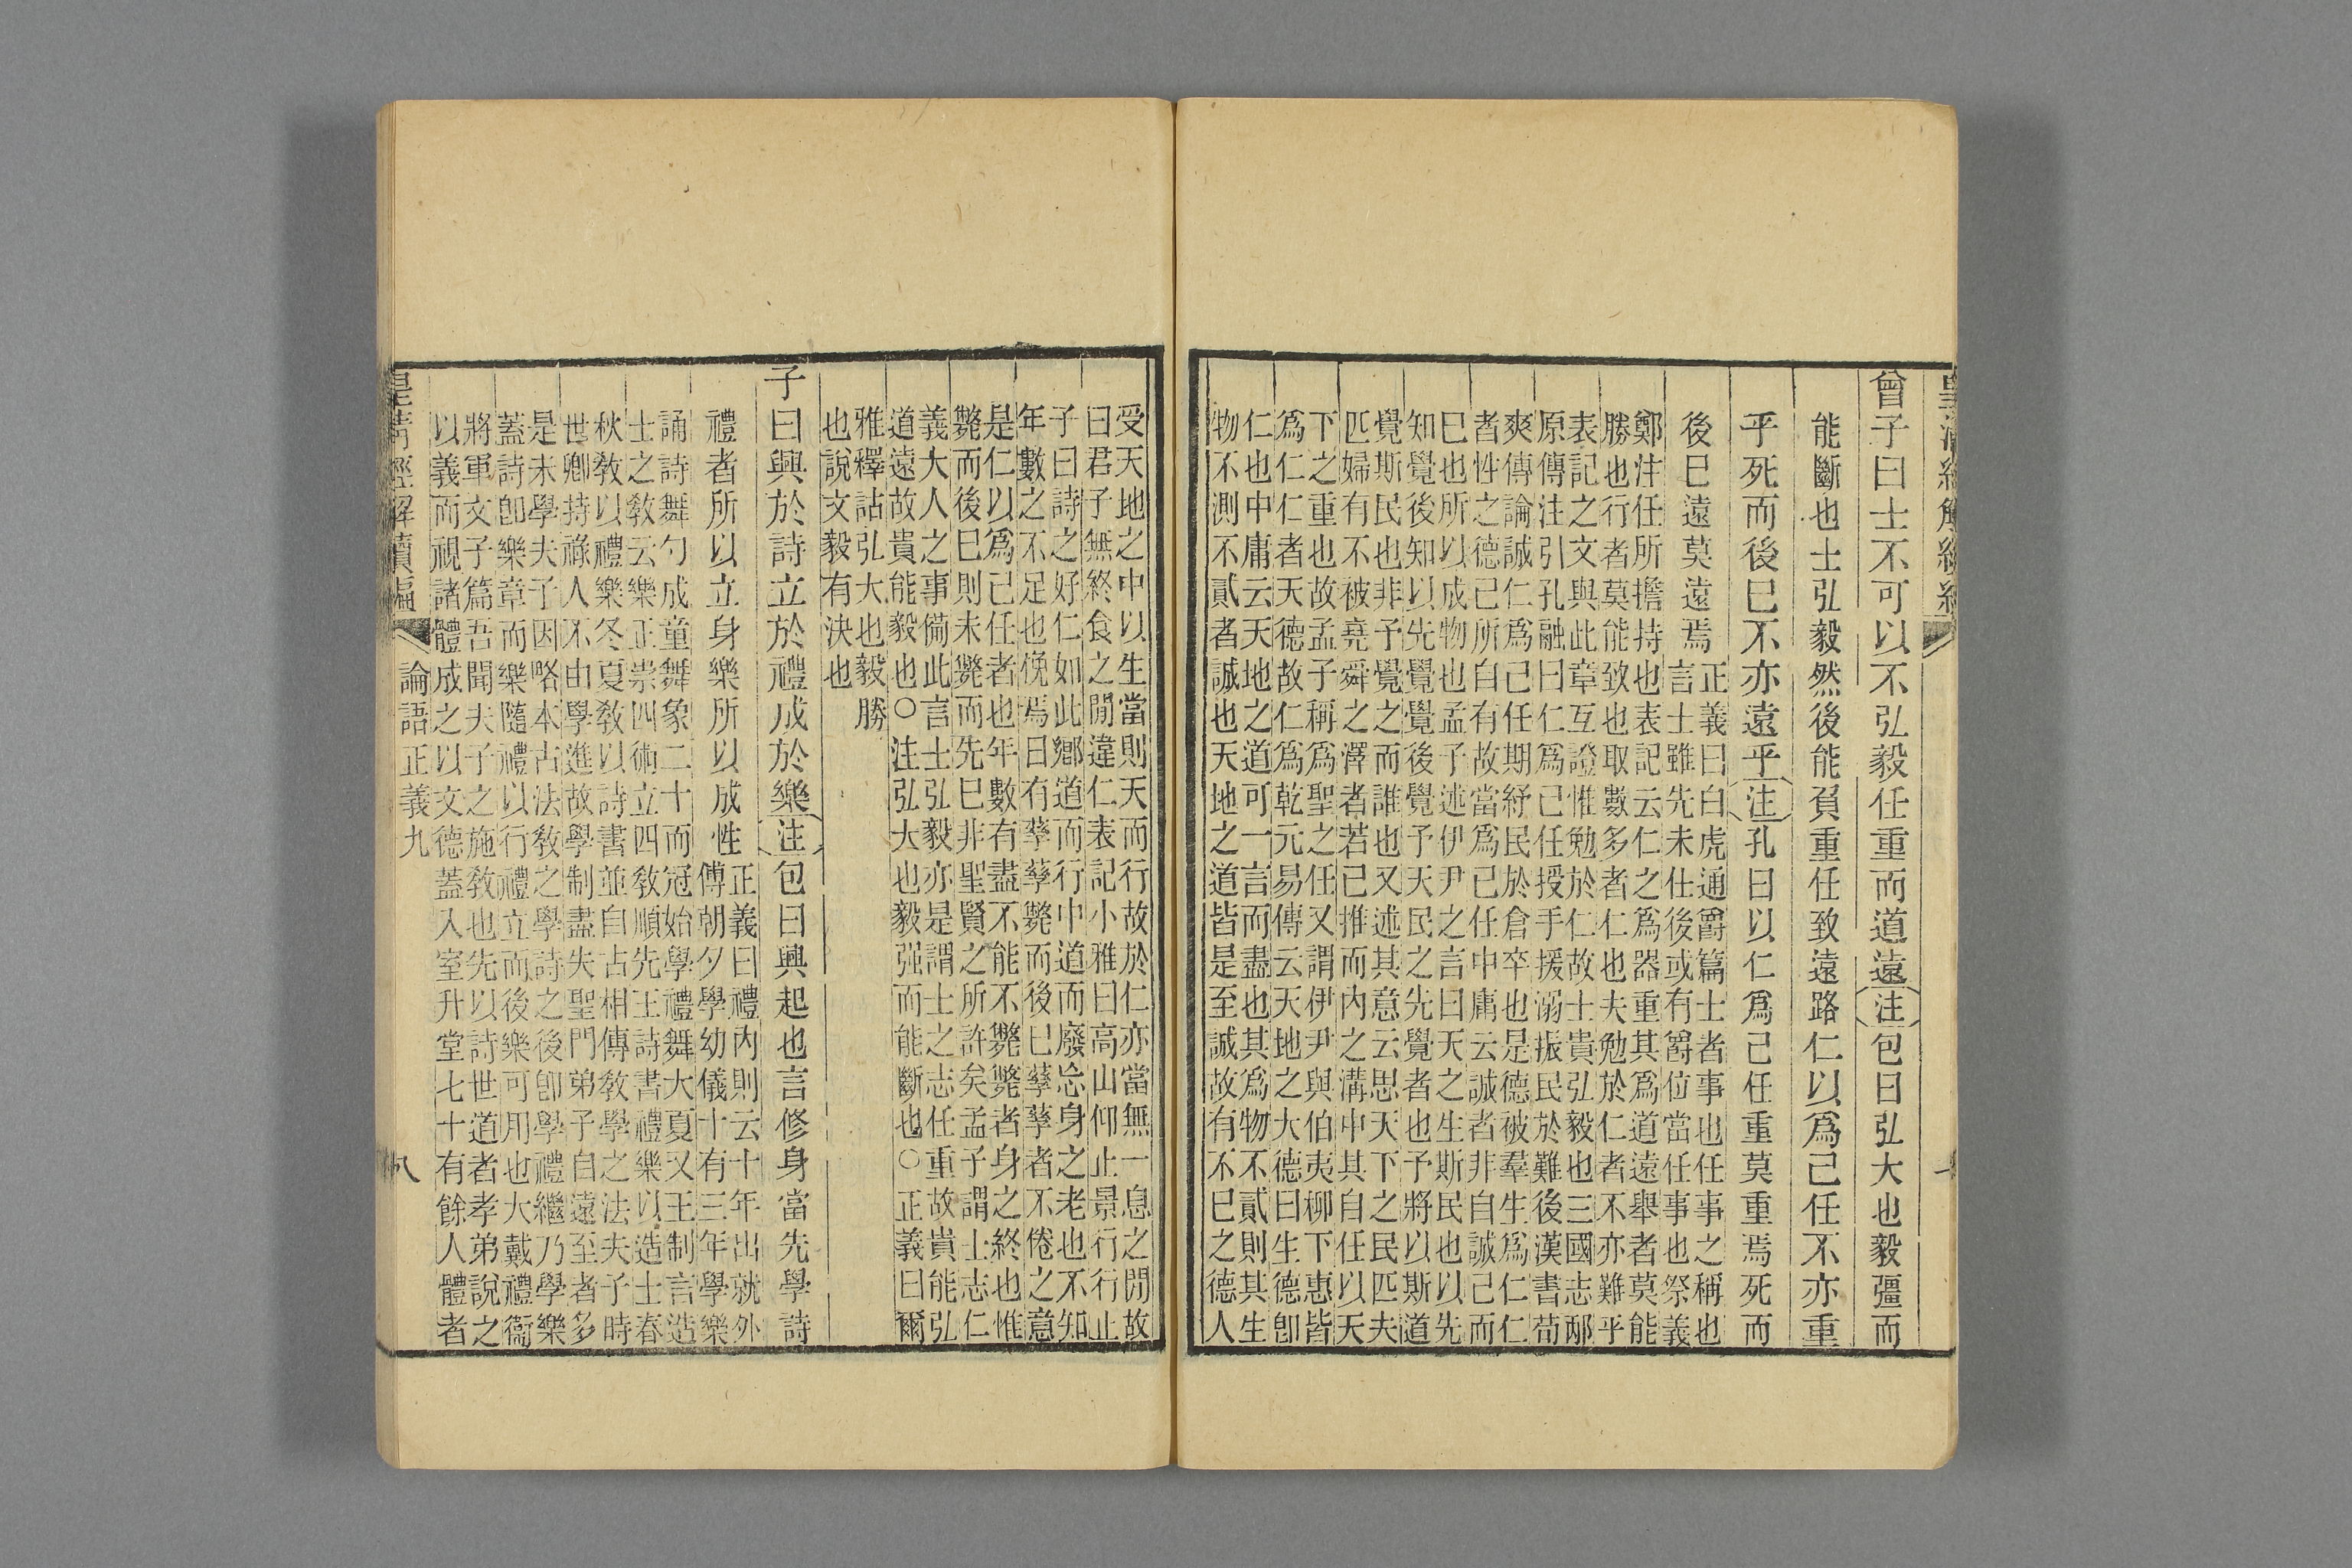 曾子曰士不可以不弘毅任重而道遠注包曰弘大也毅彊而
能斷也士弘毅然後能負重任致遠路仁以爲己任不亦重
乎死而後已不亦遠乎注孔曰以仁爲己任重莫重焉死而
後已遠莫遠焉
正義曰白虎通爵篇士者事也任事之稱也
言士雖先未仕後或有爵位當任事也祭義
鄭注任所擔持也表記云仁之爲器重其爲道遠舉者莫能
勝也行者莫能致也取數多者仁也夫勉於仁者不亦難乎
表記之文與此章互證惟勉於仁故士貴弘毅也三國志邴
原傳注引孔融曰仁爲己任授手援溺振民於難後漢書荀
爽傳論誠仁爲己任期紓民於倉卒也是德被羣生爲仁仁
者性之德己所自有故當爲己任中庸云誠者非自誠己而
已也所以成物也孟子述伊尹之言曰天之生斯民也以先
知覺後知以先覺覺後覺予天民之先覺者也予將以斯道
覺斯民也非予覺之而誰也又述其意云思天下之民匹夫
匹婦有不被堯舜之澤者若己推而內之溝中其自任以天
下之重也故孟子稱爲聖之任又謂伊尹與伯夷柳下惠皆
爲仁仁者天德故仁爲乾元易傳云天地之大德曰生德卽
仁也中庸云天地之道可一言而盡也其爲物不貳則其生
物不測不貳者誠也天地之道皆是至誠故有不已之德人
受天地之中以生當則天而行故於仁亦當無一息之閒故
曰君子無終食之閒違仁表記小雅曰高山仰止景行行止
子曰詩之好仁如此鄉道而行中道而廢忘身之老也不知
年數之不足也俛焉日有孳孳斃而後已孳孳者不倦之意
是仁以爲己任者也年數有盡不能不斃斃者身之終也惟
斃而後已則未斃而先已非聖賢之所許矣孟子謂士志仁
義大人之事備此言士弘毅亦是謂士之志任重故貴能弘
道遠故貴能毅也○注弘大也毅强而能斷也○正義曰爾
雅釋詁弘大也毅勝
也說文毅有決也
子曰興於詩立於禮成於樂注包曰興起也言修身當先學詩
禮者所以立身樂所以成性
正義曰禮內則云十年出就外
傅朝夕學幼儀十有三年學樂
誦詩舞勺成童舞象二十而冠始學禮舞大夏又王制言造
士之敎云樂正崇四術立四敎順先王詩書禮樂以造士春
秋敎以禮樂冬夏敎以詩書並自古相傳敎學之法夫子時
世卿持祿人不由學進故學制盡失聖門弟子自遠至者多
是未學夫子因略本古法敎之學詩之後卽學禮繼乃學樂
蓋詩卽樂章而樂隨禮以行禮立而後樂可用也大戴禮衞
將軍文子篇吾聞夫子之施敎也先以詩世道者孝弟說之
以義而視諸體成之以文德蓋入室升堂七十有餘人體者
皇清經解續編 論語正義九 八